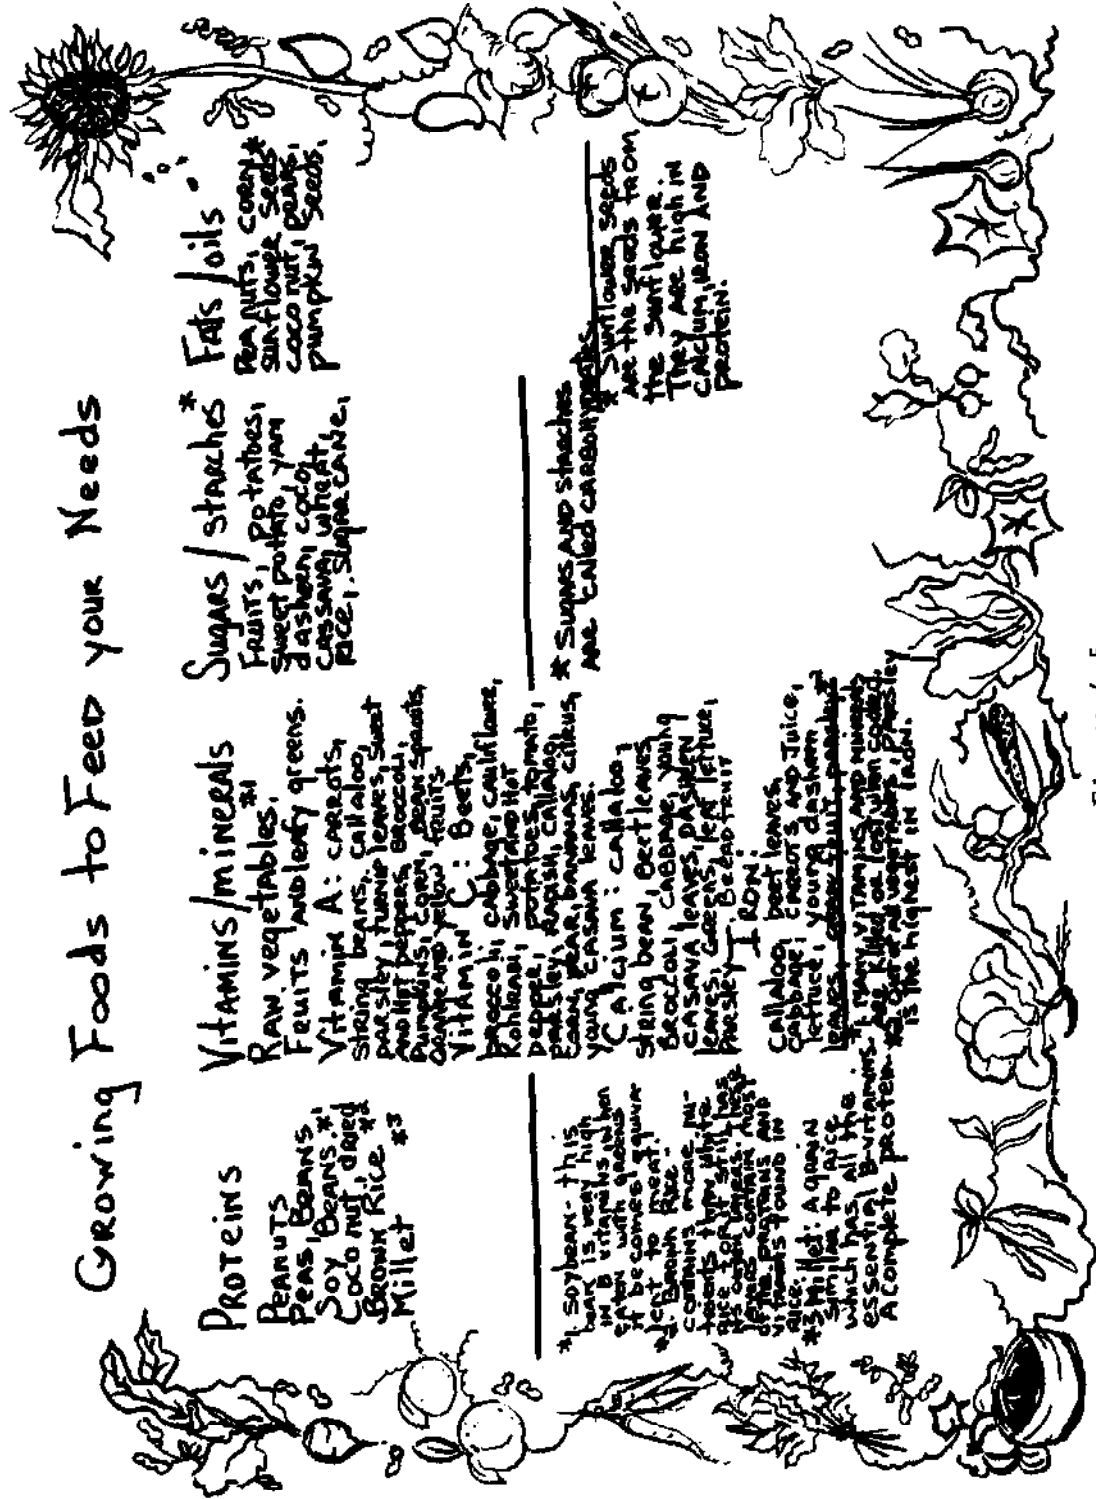 Growing Foods to Feed your Needs
Proteins
Peanuts
Peas, Beans
Soy Beans. *1
Coconut, dried
Brown Rice *2
Millet *3
*1. Soybean- this
bean is very high
in B vitamins. When
eaten with greens
it becomes equiva-
lent to meat!
*2. Brown Rice -
contains more nu-
trients than white
rice for it still has
its outer layers. These
layers contain most
of the proteins and
vitamins found in
rice.
*3 Millet: A grain
similar to rice
which has all the
essential B-vitamins.
A complete protein
Vitamins/minerals
Raw vegetables, *1
Fruits and leafy greens.
Vitamin A: carrots,
string beans, callaloo,
parsley, turnip leaves, sweet
and hot peppers, broccoli,
Pumpkins, corn, bean sprouts,
orange and yellow fruits
Vitamin C: Beets,
broccoli, cabbage, cauliflower,
Kohlrabi, sweet and hot
pepper, potatoes, tomato,
parsley, radish, callaloo,
corn, pear, bananas, citrus,
young casava leaves.
Calcium: callaloo,
string bean, beet leaves,
Broccoli, cabbage, young
casava leaves, dashen
leaves, Greens, leaf lettuce,
Parsley. Breadfruit
Iron:
Callaloo, beet leaves,
cabbage, carrots and juice,
lettuce, young dashen
leaves, fruit, parsley *2
*1. Many vitamins and minerals
are killed or lost when cooked.
*2 Out of all vegetables, parsley
is the highest in iron.
Sugars/starches *
Fruits, potatoes,
sweet potato yam
dashen, coco,
cassava, wheat,
Rice, sugar cane,
* Sugars and starches
are called carbohydrates.
Fats/oils
Peanuts, corn *
sunflower seeds
coconut, pears,
pumpkin seeds,
* Sunflower seeds
are the seeds from
the sunflower.
They are high in
calcium, iron and
protein.